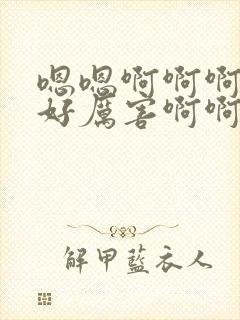 嗯嗯啊啊啊
好厲害啊啊
解甲藍衣人